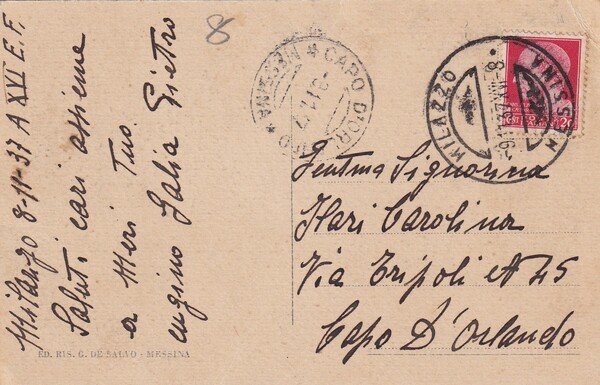 8
Milazzo 8-11-37 A XVI E.F.
Saluti cari assieme
a Meri Tuo
cugino Pietro
Gentma Signorina
Ilari Carolina
Via Tripoli N 45
Capo D'Orlando
MILAZZO
MESSINA
CAPO D'ORLANDO
MESSINA
20
ED. RIS. G. DE SALVO - MESSINA